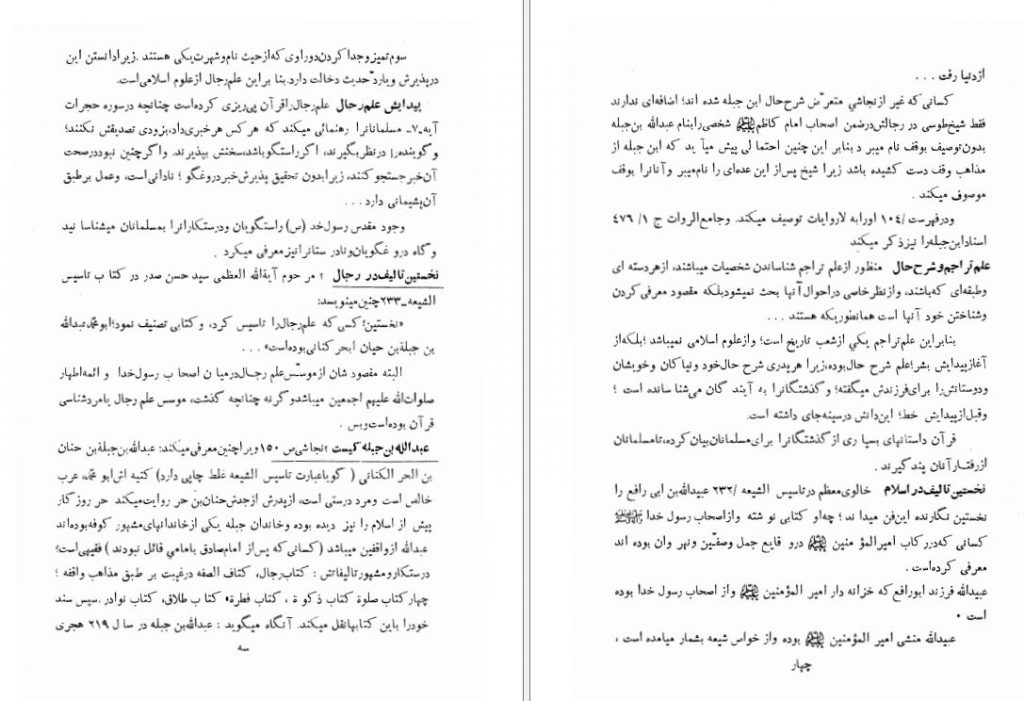 سوم تمیز و جدا کردن دو راوی که از حیث نام و شهرت یکی هستند . زیرا دانستن این
در پذیرش و یا ردّ حدیث دخالت دارد. بنا بر این علم رجال از علوم اسلامی است.
پیدایش علم رجال علم رجال را قرآن پی ریزی کرده است چنانچه در سوره حجرات
آیه ـ۷ـ مسلمانانرا رهنمائی میکند که هر کس هر خبری داد، بزودی تصدیقش نکنند؛
و گوینده را در نظر بگیرند، اگر راستگو باشد، سخنش بپذیرند. و اگر چنین نبود در صحت
آن خبر جستجو کنند، زیرا بدون تحقیق پذیرش خبر دروغگو ؛ نادانی است، و عمل بر طبق
آن پشیمانی دارد . . .
وجود مقدس رسول خدا (ص) راستگویان و درستکارانرا بمسلمانان میشناسا نید
و گاه درو غگویان و نادر ستانرا نیز معرفی میکرد .
نخستین تالیف در رجال ؛ مر حوم آیة الله العظمی سید حسن صدر در کتا ب تاسیس
الشیعه ـ۲۳۳ چنین مینویسد:
«نخستین؛ کسی که علم رجال را تاسیس کرد، و کتابی تصنیف نمود؛ ابو محمد عبدالله
بن جبلة بن حیان ابحر کنانی بوده است» . . .
البته مقصود شان از موسّس علم رجال در میا ن اصحا ب رسول خدا و ائمه اطهار
صلوات الله علیهم اجمعین میباشد و گر نه چنانچه گذشت، موسس علم رجال یا مرد شناسی
قر آن بوده است و بس .
عبدالله بن جبله کیست ؛ نجاشی ص ۱۵۰ ویرا چنین معرفی میکند: عبدالله بن جبلة بن حنان
بن الحر الکنانی ( گویا عبارت تاسیس الشیعه غلط چاپی دارد) کنیه اش ابو محمد، عرب
خالص است و مرد درستی است، از پدرش از جدش حنان بن حر روایت میکند حر روز گار
پیش از اسلام را نیز دیده بوده و خاندان جبله یکی از خاندانهای مشهور کوفه بوده اند
عبدالله از واقفین میباشد (کسانی که پس از امام صادق بامامی قائل نبودند ) فقیهی است؟
درستکار و مشهور تالیفاتش : کتاب رجال، کتاف الصفه در غیبت بر طبق مذاهب واقفه ؛
چهار کتاب صلوة کتاب ذکو ة ، کتاب فطرة، کتا ب طلاق، کتاب نوادر. سپس سند
خود را باین کتابها نقل میکند. آنگاه میگوید : عبدالله بن جبله در سا ل ۲۱۹ هجری
سه
از دنیا رفت . . .
کسانی که غیر از نجاشی متعرّض شرح حال ابن جبله شده اند؛ اضافه ای ندارند
فقط شیخ طوسی در رجالش در ضمن اصحاب امام کاظم ﷺ شخصی را بنام عبدالله بن جبله
بدون توصیف بوقف نام میبر د بنابر این چنین احتما لی پیش میآ ید که ابن جبله از
مذاهب وقف دست کشیده باشد زیرا شیخ پس از این عده ای را نام میبر و آنانرا بوقف
موصوف میکند .
و در فهرست / ۱۰۴ او را به لا روایات توصیف میکند. و جامع الروات ج ۱/ ۴۷۶
اسناد ابن جبله را نیز ذکر میکند
علم تراجم و شرح حال منظور از علم تراجم شناساندن شخصیات میباشند، از هر دسته ای
و طبقه ای که باشند، و از نظر خاصی در احوال آنها بحث نمیشود بلکه مقصود معرفی کردن
و شناختن خود آنها است همانطوریکه هستند . . .
بنابر این علم تراجم یکی از شعب تاریخ است؛ و از علوم اسلامی نمیباشد ؛ بلکه از
آغاز پیدایش بشر؛ علم شرح حال بوده، زیرا هر پدری شرح حال خود و نیا کان و خویشان
و دوستانش را برای فرزندش میگفته؛ و گذشتگانرا به آیند گان می شنا سانده است ؛
و قبل از پیدایش خط؛ این دانش در سینه جای داشته است.
قر آن داستانهای بسیا ری از گذشتگانرا برای مسلمانان بیان کرده، تا مسلمانان
از رفتار آنان پند گیرند .
نخستین تالیف در اسلام خالوی معظم در تاسیس الشیعه /۲۳۲ عبیدالله بن ابی رافع را
نخستین نگارنده این فن میدا ند ؛ چه او کتابی نو شته و از اصحاب رسول خدا ﷺ
کسانی که در رکاب امیر المؤ منین ﷺ درو قایع جمل و صفّین و نهر وان بوده اند
معرفی کرده است .
عبیدالله فرزند ابو رافع که خزانه دار امیر المؤمنین ﷺ و از اصحاب رسول خدا بوده
است .
عبیدالله منشی امیر المؤمنین ﷺ بوده و از خواس شیعه بشمار میامده است ،
چهار